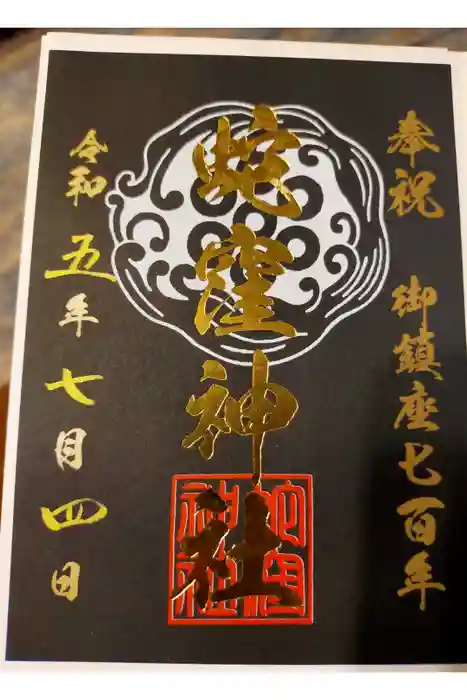 奉祝 御鎮座七百年
蛇窪神社
蛇窪神社
令和五年七月四日